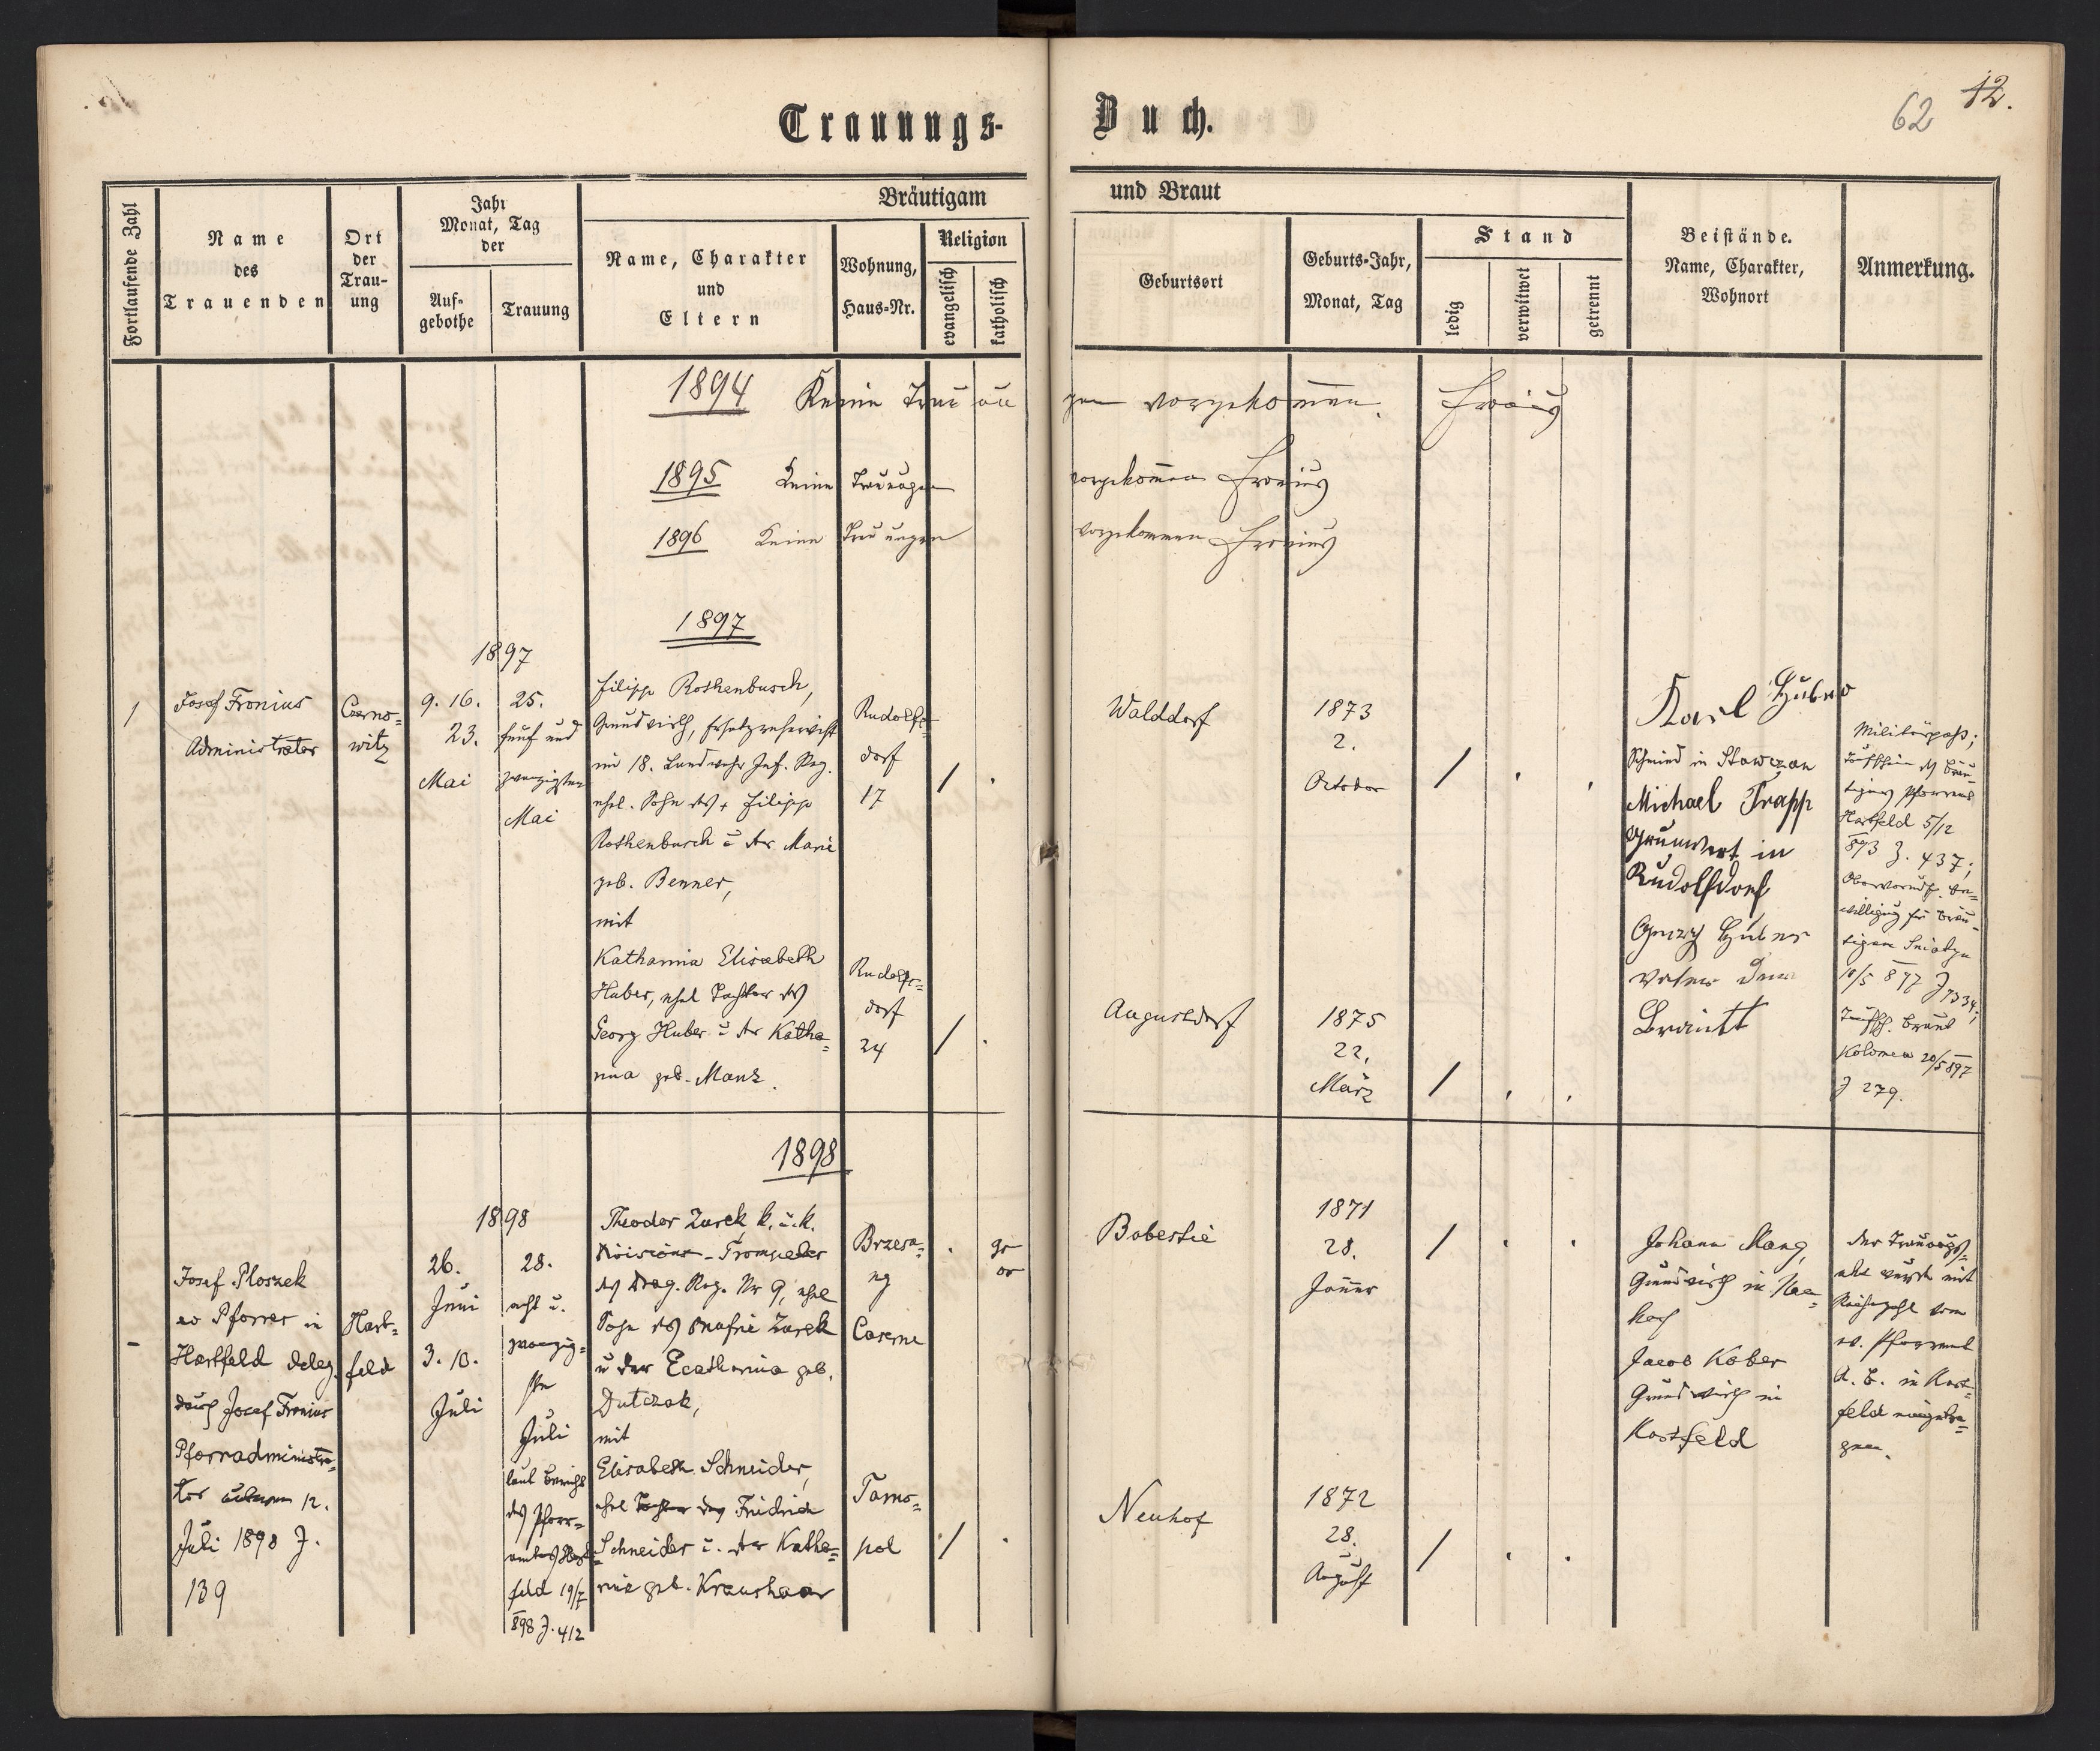 Trauungs-
Buch.
62 12.
Fortlaufende Zahl
Name
des
Trauenden
Ort
der
Trau-
ung
Jahr
Monat, Tag
der
Auf-
gebothe
Trauung
Bräutigam
und Braut
Name, Charakter
und
Eltern
Wohnung,
Haus-Nr.
Religion
evangelisch
katholisch
Geburtsort
Geburts-Jahr,
Monat, Tag
Stand
ledig
verwitwet
getrennt
Beistände.
Name, Charakter,
Wohnort
Anmerkung.
1894 Keine Trauungen vorgekom̅en. Fronius
1895 Keine Trauungen vorgekom̅en Fronius
1896 Keine Trauungen vorgekommen Fronius
1897
1
Josef Fronius
Administrator
Czerno=
witz
1897
9. 16.
23.
Mai
25.
fünf und
zwanzigsten
Mai
Filipp Rothenbusch,
Grundwirth, Ersatzreservist
im 18. Landwehr Inf. Reg.
ehel. Sohn des + Filipp
Rothenbusch u der Marie
geb. Benner,
mit
Katharina Elisabeth
Huber, ehel Tochter des
Georg Huber u der Katha=
rina geb. Manz.
Rudolfs=
dorf
17
Rudolfs=
dorf
24
Walddorf
1873
2.
October
Augustdorf
1875
22.
März
Karl Huber
Schmied in Stawczan
Michael Trapp
Grunwert in
Rudolfsdorf
Huber
Vater der
Brautt
Militärpass;
Taufschein des Bräu-
tigams Pfarramt
Hartfeld 5/12
893 Z. 437;
Obervormdsch. Be=
willigung für Bräu-
tigam Sniatyn
10/5 897 Z 7334;
Taufsch. Braut
Kolomea 20/5 897
Z 279.
1898
Josef Ploszek
ev Pfarrer in
Hartfeld deleg.
durch Josef Fronius
Pfarradministra=
tor 12.
Juli 1898 Z.
139
Hart-
feld
1898
26.
Juni
3. 10.
Juli
28.
acht u.
zwanzig=
ste
Juli
laut Bericht
des Pfarr=
amtes Hart=
feld 19/7
898 Z. 412
Theodor Zurek k. u. k.
Divisions-Trompeter
des Drag. Reg. Nr 9, ehel
Sohn des Onufrie Zurek
u der Ecatharina geb.
Dutczak,
mit
Elisabeth Schneider,
ehel Tochter des Fridrich
Schneider u. der Katha=
rine geb. Kraushaar
Brzeza=
ny
Caserne
gr
or
Tarno=
pol
Bobestie
1871
28.
Jänner
Neuhof
1872
28.
August
Johann Mang,
Grundwirth in
Jacob Kober
Grundwirth in
Hartfeld
Der Trauungs=
akt wurde mit
Reihezahl vom
ev. Pfarramt
A. B. in Hart=
feld eingetra=
gen.